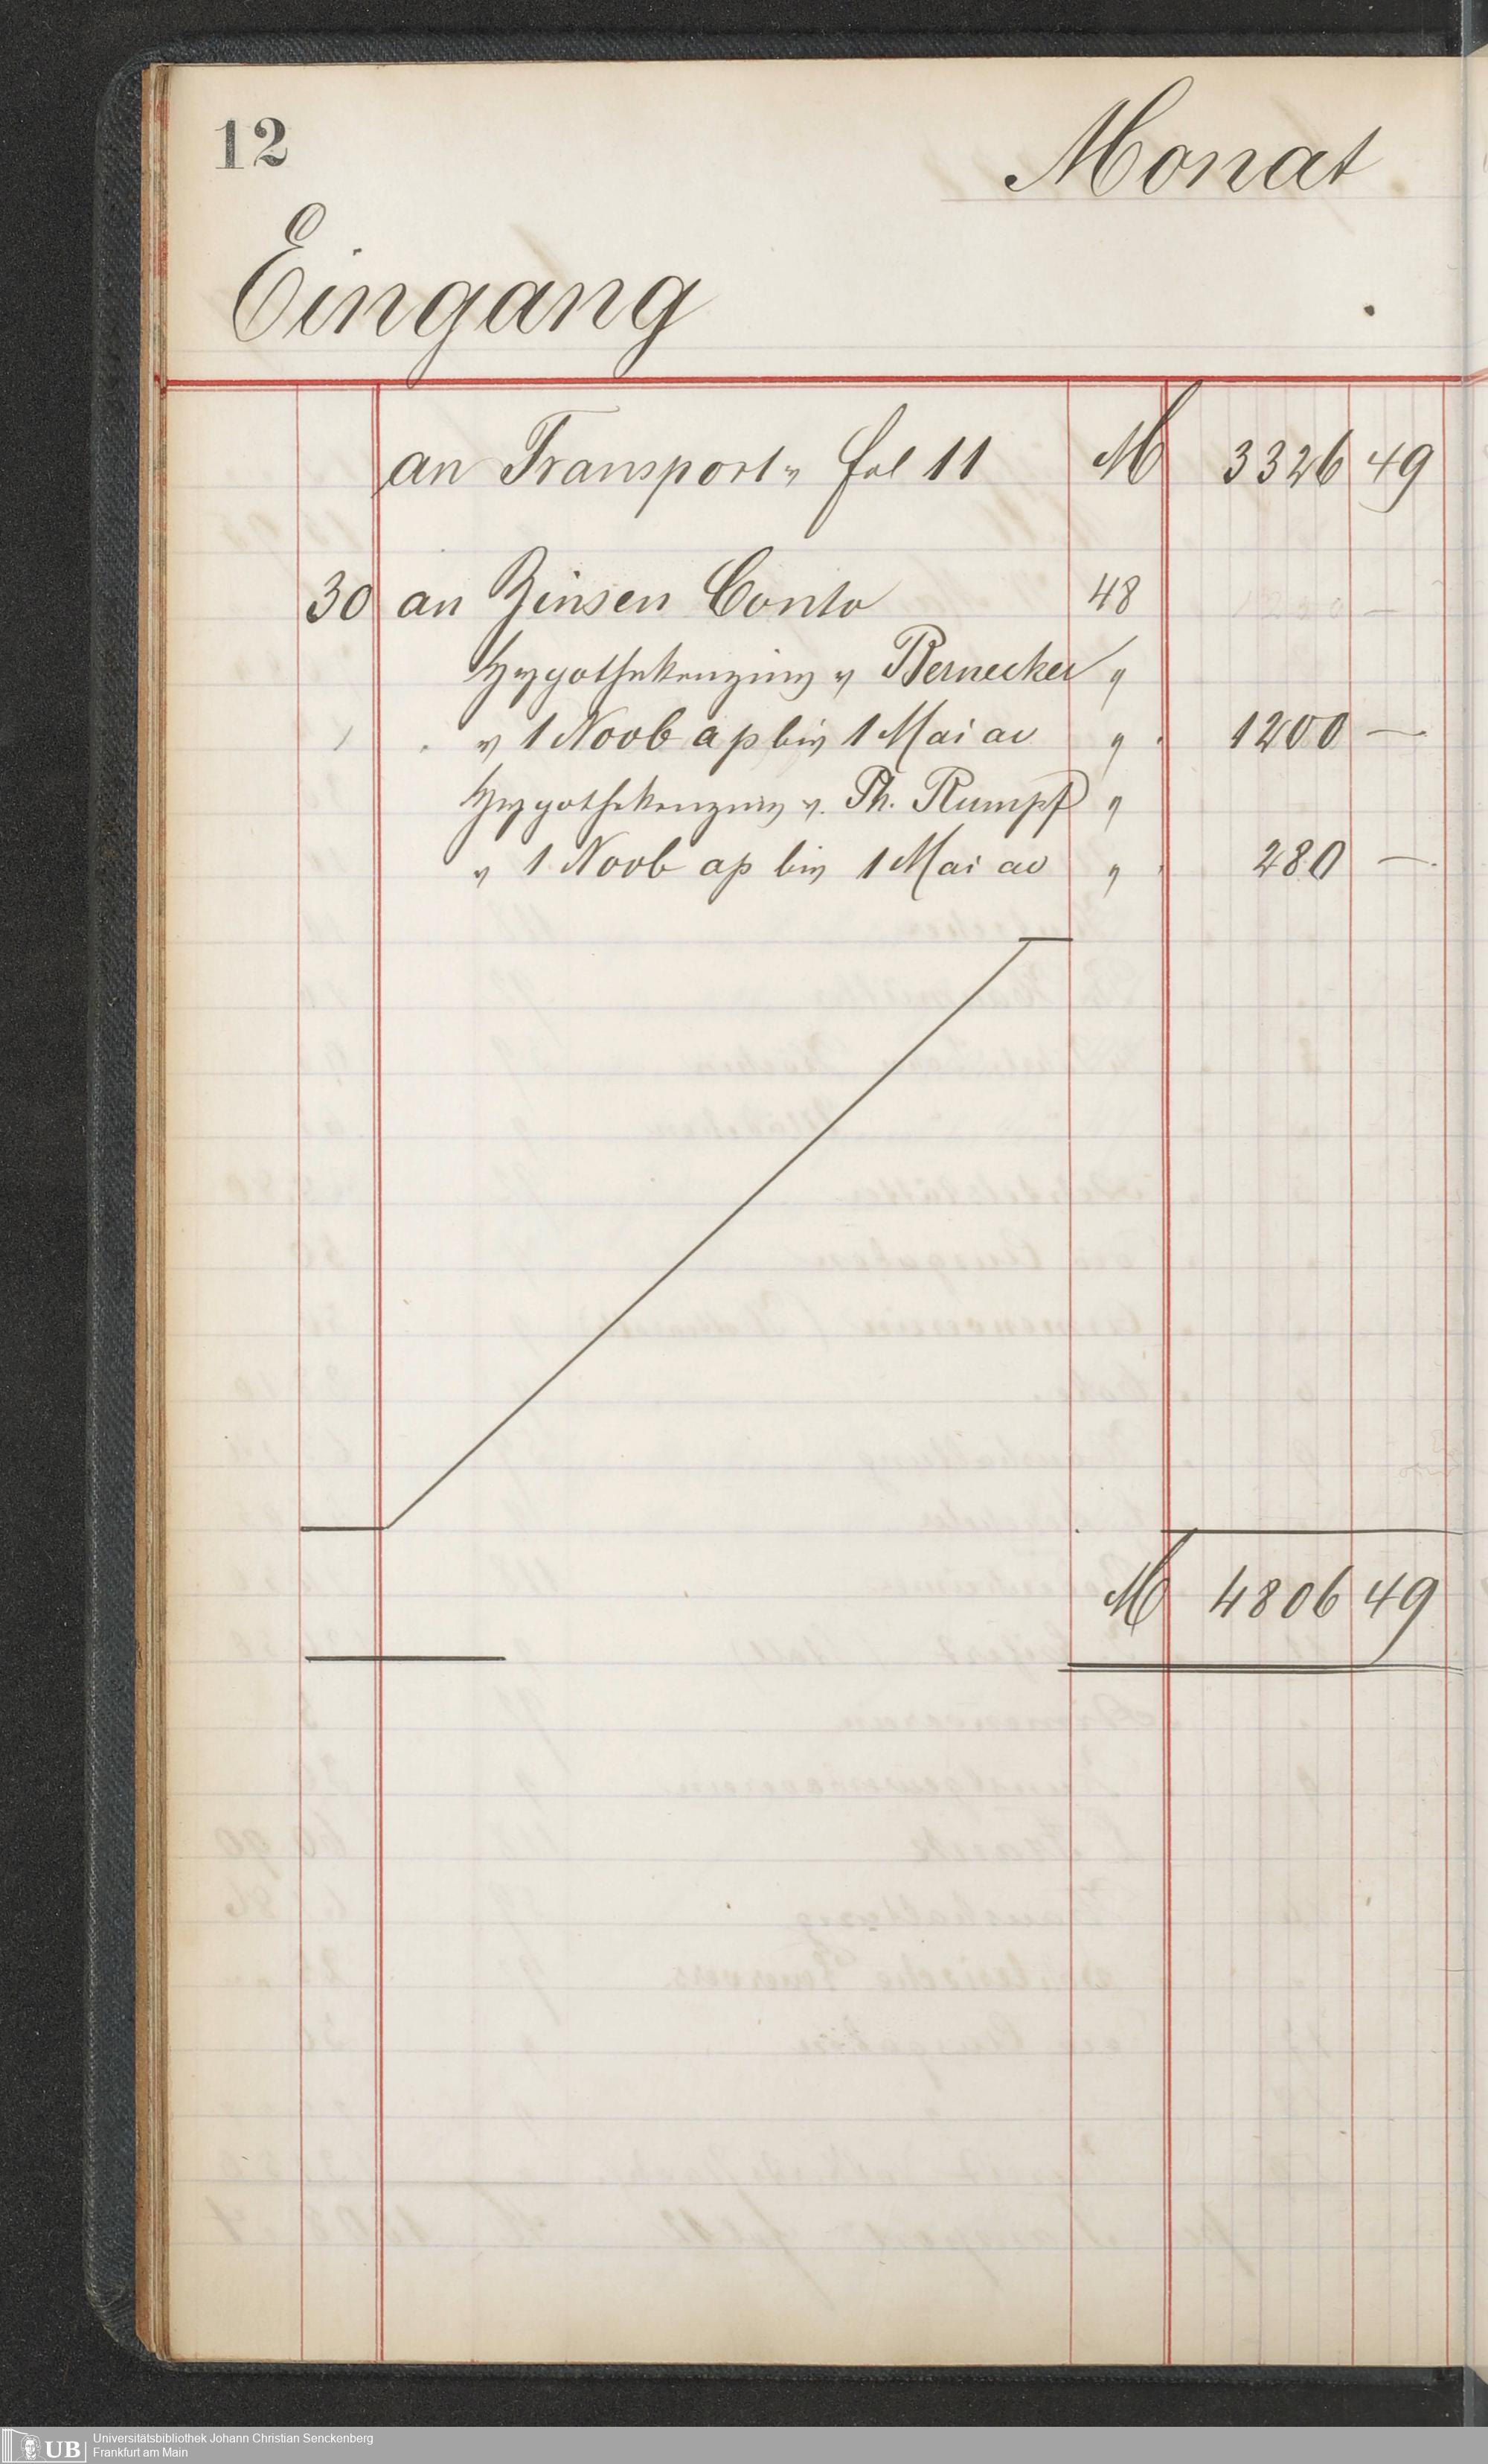 12
Monat
Eingang
an Transport v fol 11 M 3326 49
30 an Zinsen Conto 48
Hypothekenzins v Bernecker "
v 1 Novb a p bis 1 Mai ac " 1200 —
Hypothekenzins v. Ph. Rumpf "
v 1 Novb ap bis 1 Mai ac " 280 —
M 4806 49
UB
Universitätsbibliothek Johann Christian Senckenberg
Frankfurt am Main